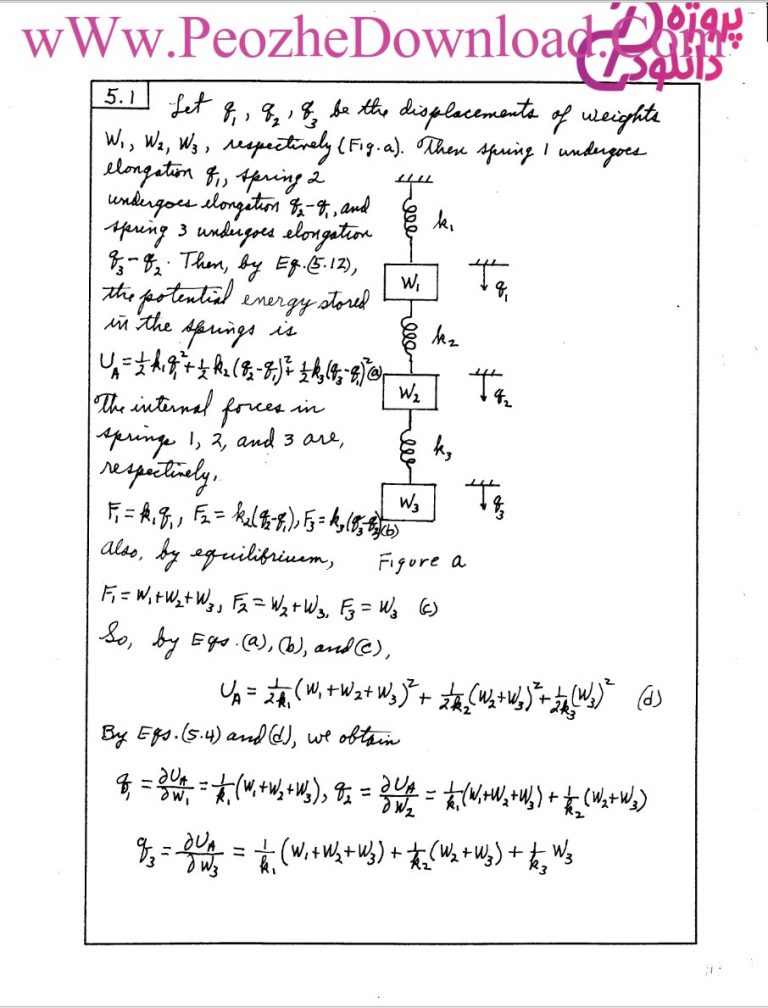 wWw.PeozheDownload.Com
پروژه
دانلود
5.1
Let q₁, q₂, q₃ be the displacements of weights
W₁, W₂, W₃, respectively (Fig. a). Then spring 1 undergoes
elongation q₁, spring 2
undergoes elongation q₂-q₁, and
spring 3 undergoes elongation
q₃-q₂. Then, by Eq. (5.12),
the potential energy stored
in the springs is
U_A = ½ k₁q₁² + ½ k₂(q₂-q₁)² + ½ k₃(q₃-q₂)² (a)
The internal forces in
springs 1, 2, and 3 are,
respectively,
F₁ = k₁q₁, F₂ = k₂(q₂-q₁), F₃ = k₃(q₃-q₂) (b)
k₁
W₁
q₁
k₂
W₂
q₂
k₃
W₃
q₃
Figure a
Also, by equilibrium,
F₁ = W₁+W₂+W₃, F₂ = W₂+W₃, F₃ = W₃ (c)
So, by Eqs. (a), (b), and (c),
U_A = 1/2k₁ (W₁+W₂+W₃)² + 1/2k₂ (W₂+W₃)² + 1/2k₃ (W₃)² (d)
By Eqs. (5.4) and (d), we obtain
q₁ = ∂U_A/∂W₁ = 1/k₁ (W₁+W₂+W₃), q₂ = ∂U_A/∂W₂ = 1/k₁ (W₁+W₂+W₃) + 1/k₂ (W₂+W₃)
q₃ = ∂U_A/∂W₃ = 1/k₁ (W₁+W₂+W₃) + 1/k₂ (W₂+W₃) + 1/k₃ W₃